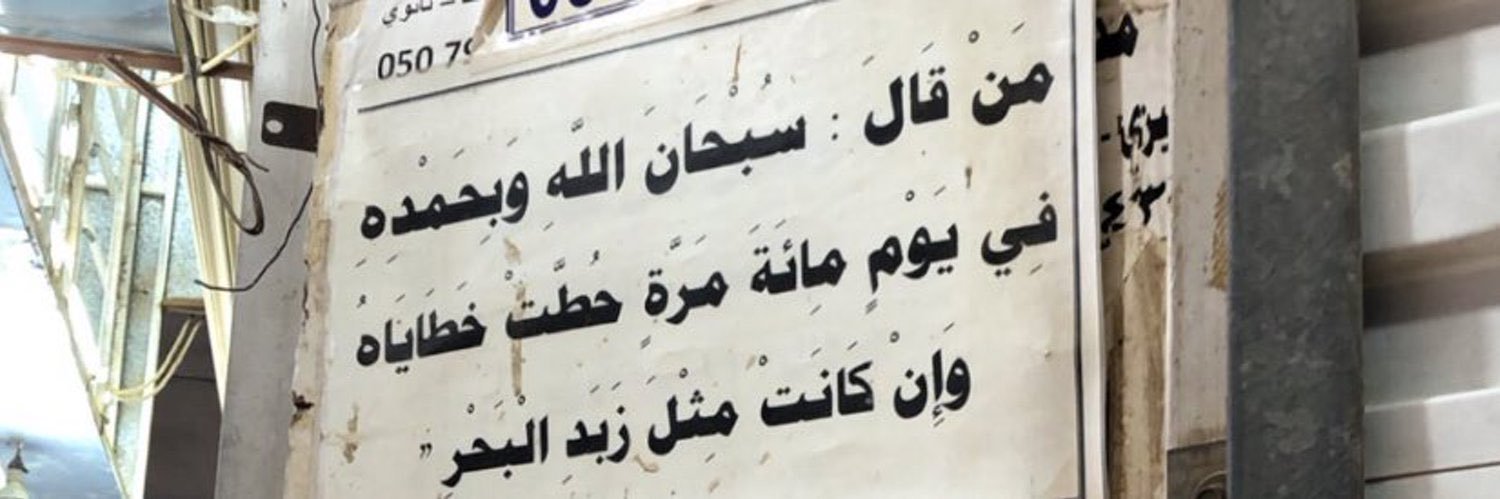 ثانوي
050 79
مَنْ قَالَ : سُبْحَانَ اللَّهِ وَبِحَمْدِهِ
فِي يَوْمٍ مِائَةَ مَرَّةٍ حُطَّتْ خَطَايَاهُ
وَإِنْ كَانَتْ مِثْلَ زَبَدِ الْبَحْرِ ”